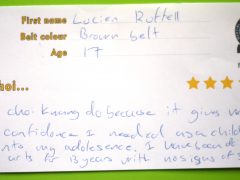 First name Lucien Ruttell
Belt colour Brown belt
Age 17
hoi...
choi kwang do because it gives me
confidence I needed as a child
into my adolesence. I have been do
arts for 13 years with no signs of s